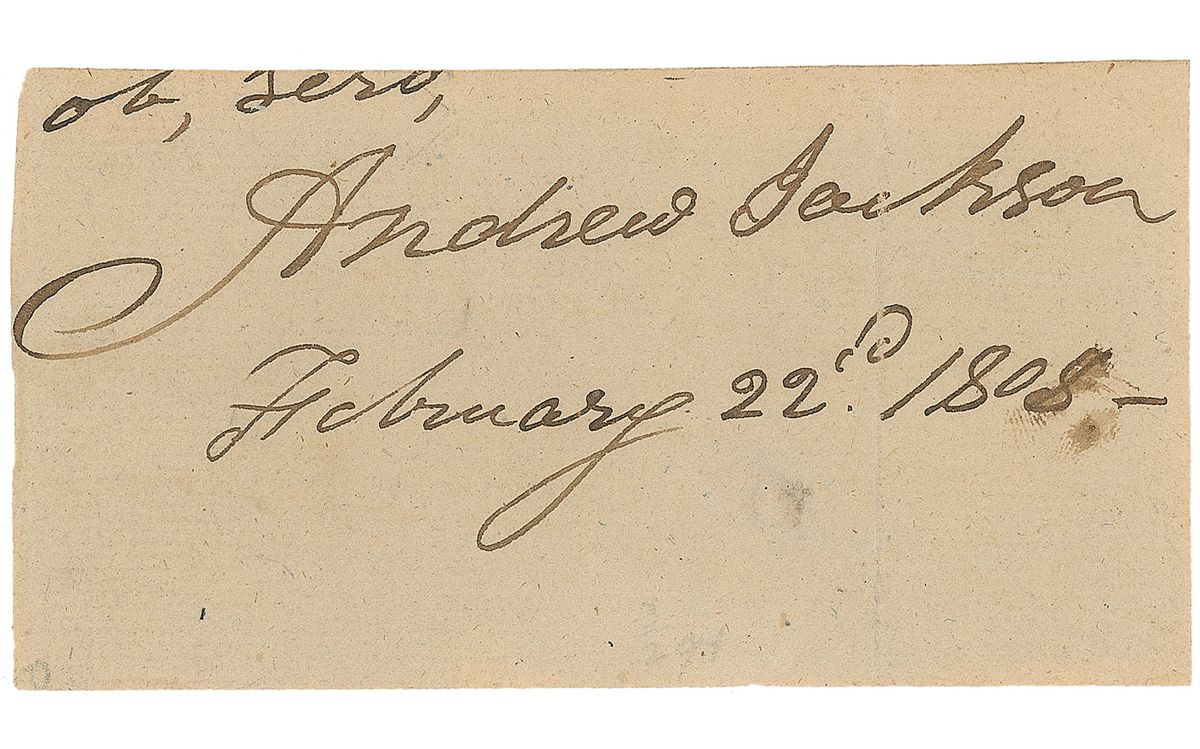 ob, Serv,
Andrew Jackson
February 22.d 1808 –